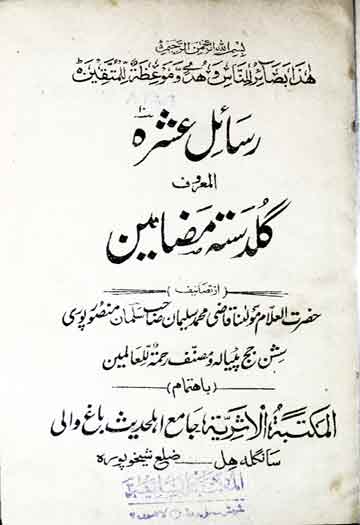 بسم الله الرحمن الرحيم
هٰذا بصائر للناس وهدى وموعظة للمتقين
رسائل عشرہ
۱۰
المعروف
گلدستہ مضامین
(از تصانیف)
حضرت العلام مولنا قاضی محمد سلیمان صاحب سلمان منصورپوری
سشن جج پٹیالہ و مصنف رحمۃ للعالمین
(باہتمام)
المکتبۃ الاثریۃ جامع اہلحدیث باغ والی
سانگلہ ہل ـــ ضلع شیخوپورہ
المكتبة السلفية
شیش محل روڈ لاہور ۲